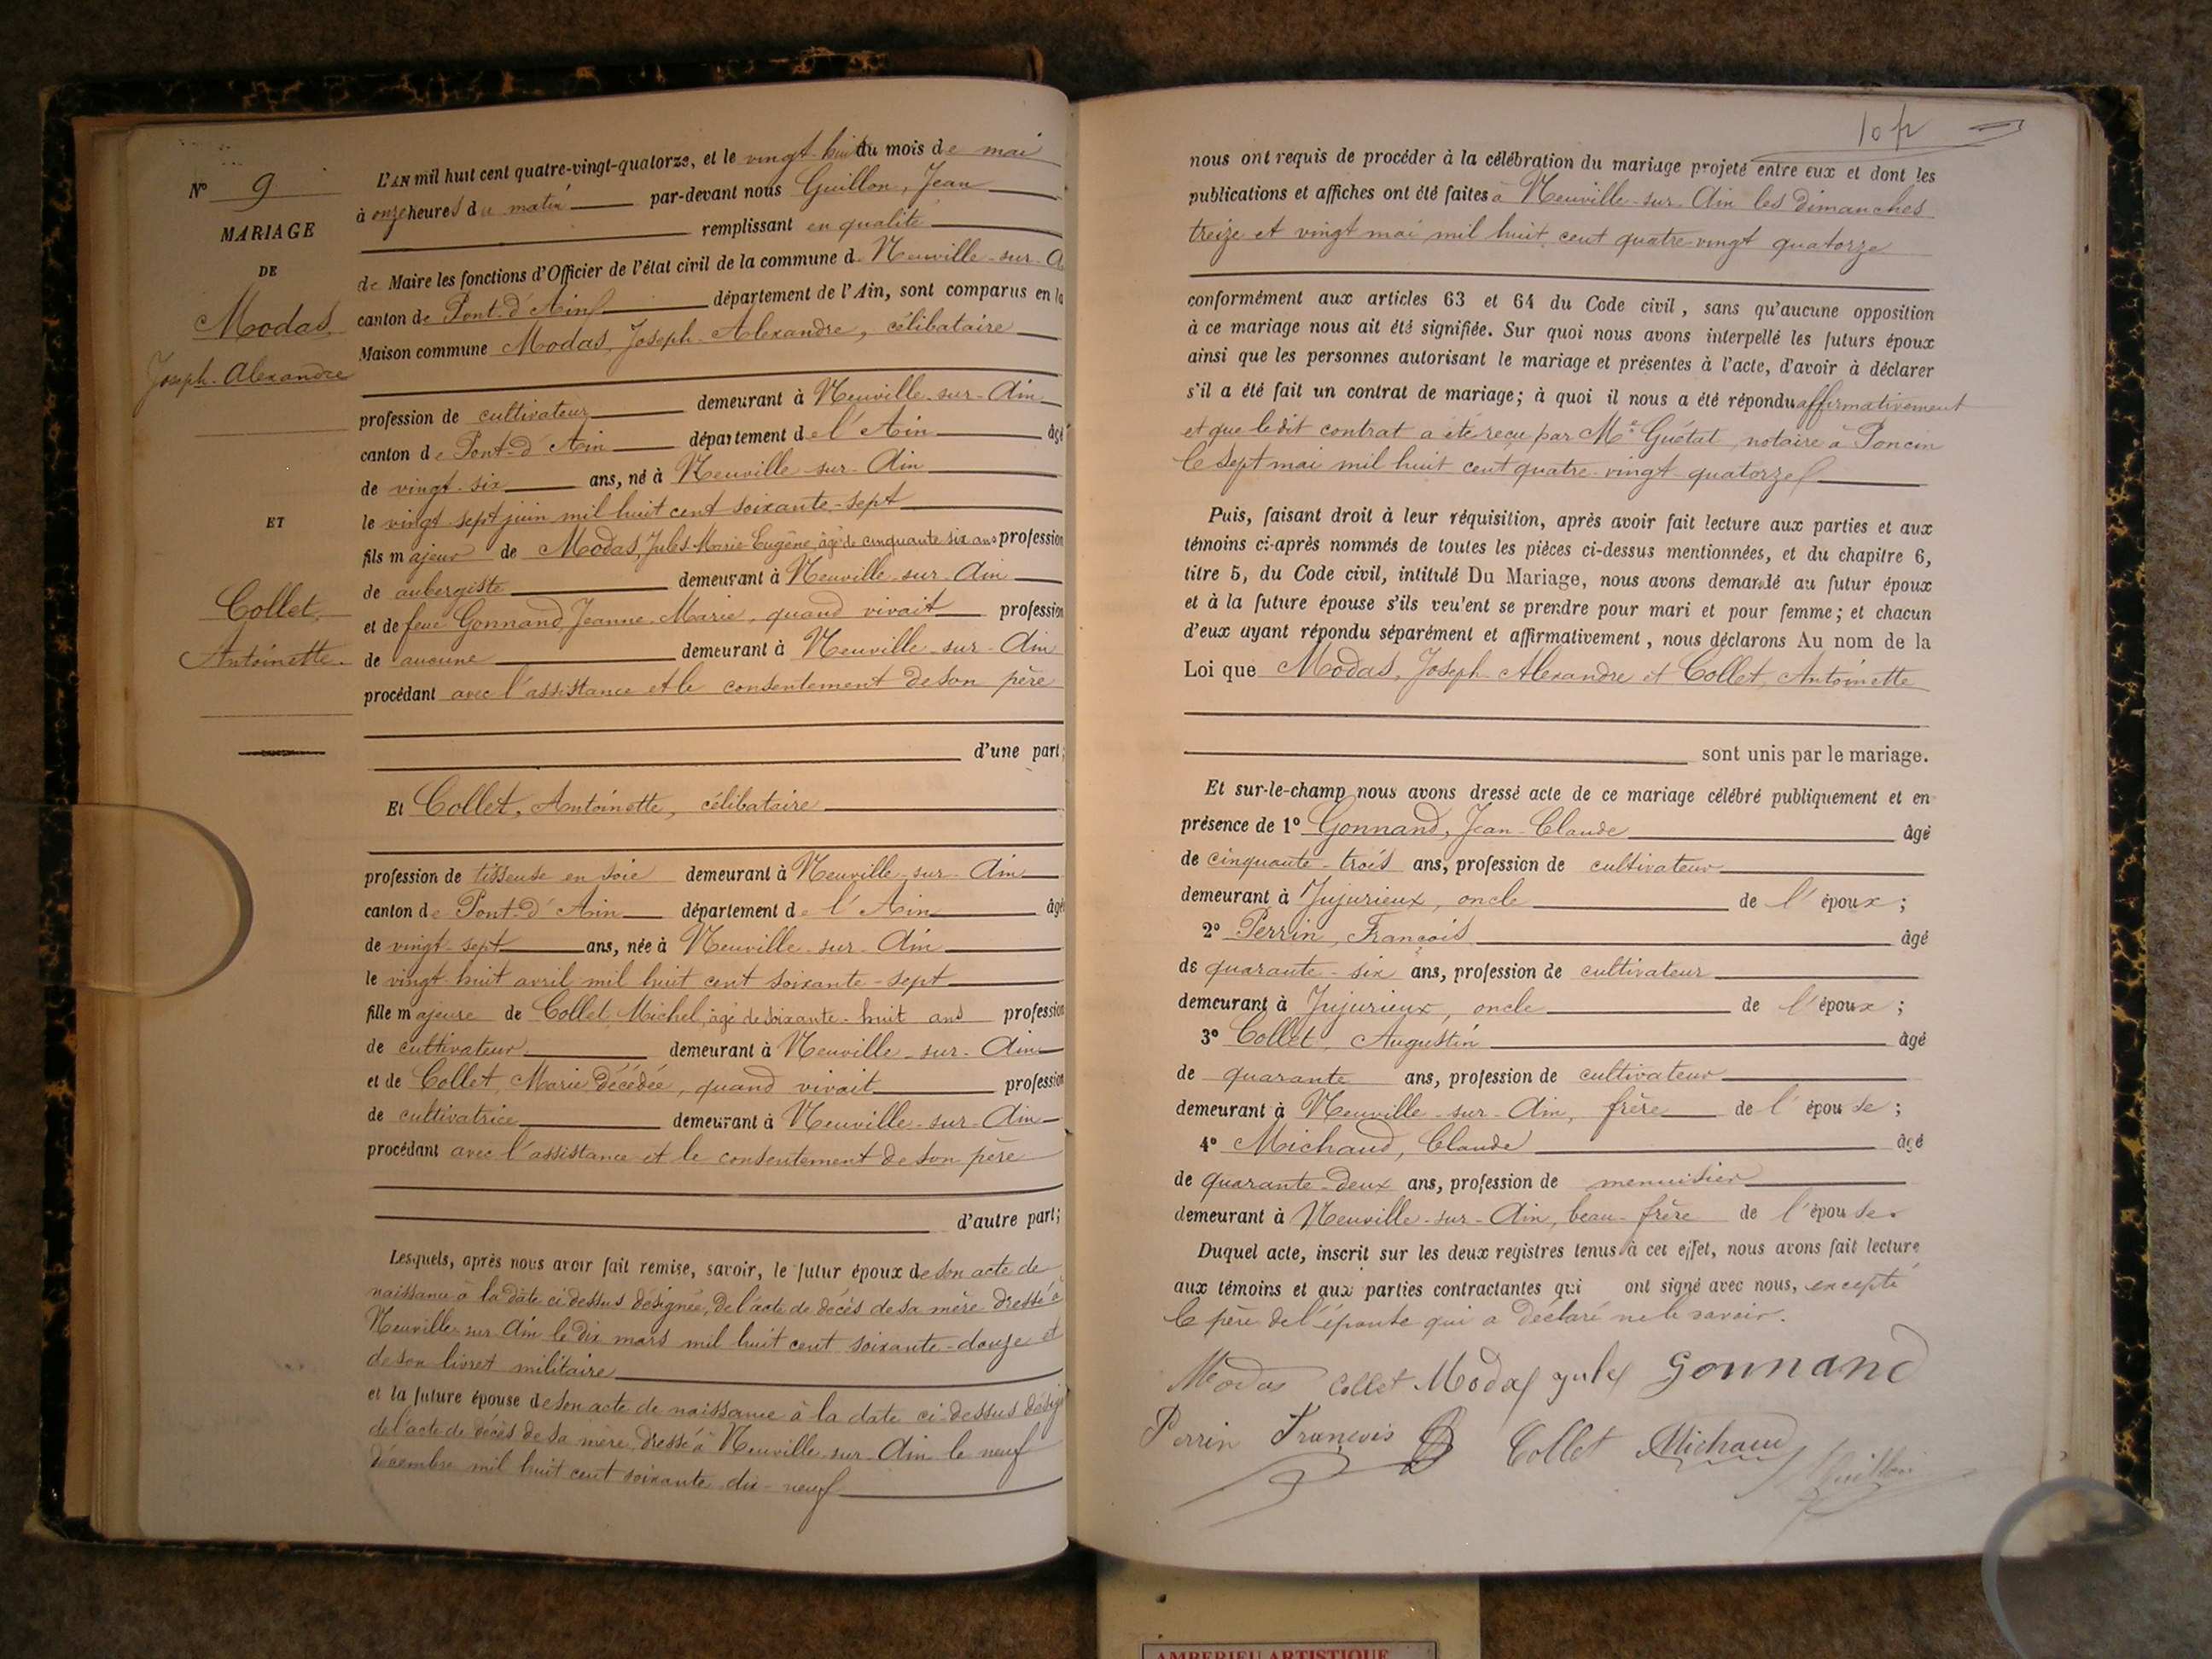 N° 9
MARIAGE
DE
Modas
Joseph-Alexandre
ET
Collet,
Antoinette.
L'AN mil huit cent quatre-vingt-quatorze, et le vingt-huit du mois de mai
à onze heures du matin par-devant nous Guillon, Jean
remplissant en qualité
de Maire les fonctions d'Officier de l'état civil de la commune d. Neuville-sur-A
canton de Pont-d'Ain département de l'Ain, sont comparus en la
Maison commune Modas, Joseph-Alexandre, célibataire
profession de cultivateur demeurant à Neuville-sur-Ain
canton de Pont-d'Ain département de l'Ain âgé
de vingt-six ans, né à Neuville-sur-Ain
le vingt-sept juin mil huit cent soixante-sept
fils majeur de Modas, Jules-Marie-Eugène, âgé de cinquante-six ans profession
de aubergiste demeurant à Neuville-sur-Ain
et de feue Gonnand, Jeanne-Marie, quand vivait profession
de aucune demeurant à Neuville-sur-Ain
procédant avec l'assistance et le consentement de son père
d'une part;
Et Collet, Antoinette, célibataire
profession de tisseuse en soie demeurant à Neuville-sur-Ain
canton de Pont-d'Ain département de l'Ain âgé
de vingt-sept ans, née à Neuville-sur-Ain
le vingt-huit avril mil huit cent soixante-sept
fille majeure de Collet, Michel, âgé de soixante-huit ans profession
de cultivateur demeurant à Neuville-sur-Ain
et de Collet, Marie décédée, quand vivait profession
de cultivatrice demeurant à Neuville-sur-Ain
procédant avec l'assistance et le consentement de son père
d'autre part;
Lesquels, après nous avoir fait remise, savoir, le futur époux de son acte de
naissance à la date ci-dessus désignée, de l'acte de décès de sa mère dressé à
Neuville-sur-Ain le dix mars mil huit cent soixante-douze et
de son livret militaire
et la future épouse de son acte de naissance à la date ci-dessus désig
de l'acte de décès de sa mère dressé à Neuville-sur-Ain le neuf
décembre mil huit cent soixante-dix-neuf
10 fr
nous ont requis de procéder à la célébration du mariage projeté entre eux et dont les
publications et affiches ont été faites à Neuville-sur-Ain les dimanches
treize et vingt mai mil huit cent quatre-vingt quatorze
conformément aux articles 63 et 64 du Code civil, sans qu'aucune opposition
à ce mariage nous ait été signifiée. Sur quoi nous avons interpellé les futurs époux
ainsi que les personnes autorisant le mariage et présentes à l'acte, d'avoir à déclarer
s'il a été fait un contrat de mariage; à quoi il nous a été répondu affirmativement
et que ledit contrat a été reçu par Me Guétat, notaire à Poncin
le sept mai mil huit cent quatre-vingt-quatorze
Puis, faisant droit à leur réquisition, après avoir fait lecture aux parties et aux
témoins ci-après nommés de toutes les pièces ci-dessus mentionnées, et du chapitre 6,
titre 5, du Code civil, intitulé Du Mariage, nous avons demandé au futur époux
et à la future épouse s'ils veulent se prendre pour mari et pour femme; et chacun
d'eux ayant répondu séparément et affirmativement, nous déclarons Au nom de la
Loi que Modas, Joseph-Alexandre et Collet, Antoinette
sont unis par le mariage.
Et sur-le-champ nous avons dressé acte de ce mariage célébré publiquement et en
présence de 1° Gonnand, Jean-Claude âgé
de cinquante-trois ans, profession de cultivateur
demeurant à Jujurieux, oncle de l'époux;
2° Perrin, François âgé
de quarante-six ans, profession de cultivateur
demeurant à Jujurieux, oncle de l'époux;
3° Collet, Augustin âgé
de quarante ans, profession de cultivateur
demeurant à Neuville-sur-Ain, frère de l'épouse;
4° Michaud, Claude âgé
de quarante-deux ans, profession de menuisier
demeurant à Neuville-sur-Ain, beau-frère de l'épouse.
Duquel acte, inscrit sur les deux registres tenus à cet effet, nous avons fait lecture
aux témoins et aux parties contractantes qui ont signé avec nous, excepté
le père de l'épouse qui a déclaré ne le savoir.
Modas Collet Modas jules Gonnand
Perrin François Collet Michaud Guillon
AMBERIEU ARTISTIQUE